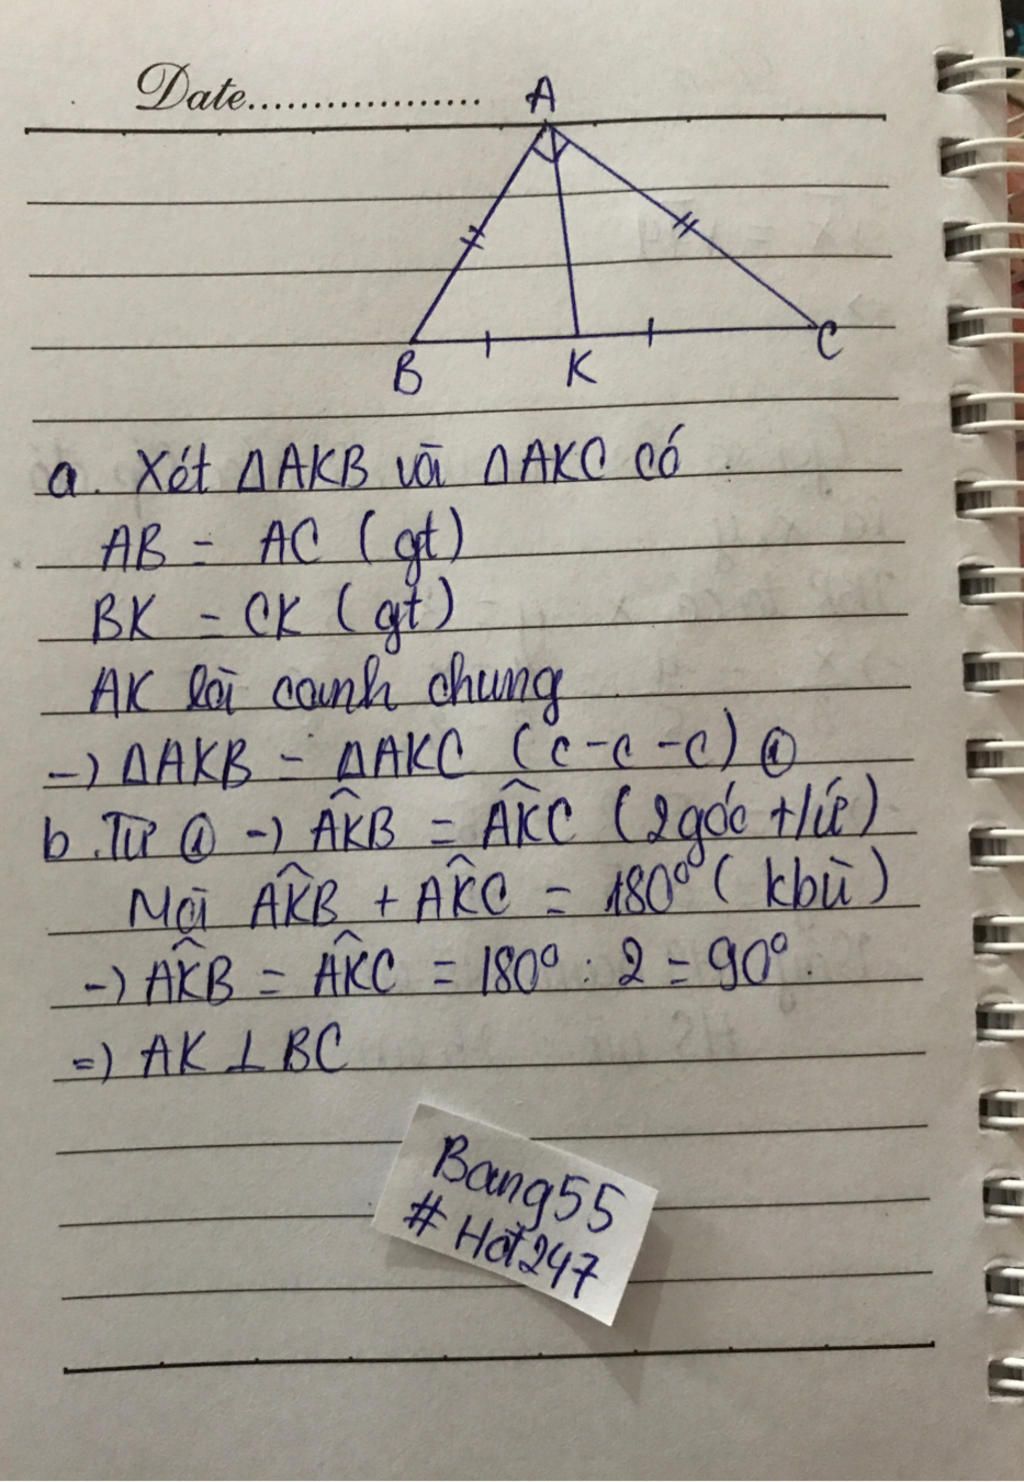 Date..................
A
B K C
a. Xét ΔAKB và ΔAKC có
AB = AC (gt)
BK = CK (gt)
AK là cạnh chung
-) ΔAKB = ΔAKC (c-c-c) ①
b. Từ ① -) AK̂B = AK̂C (2góc t/ứ)
Mà AK̂B + AK̂C = 180° (kbù)
-) AK̂B = AK̂C = 180° : 2 = 90°.
=) AK ⊥ BC
Bang55
# Hot247